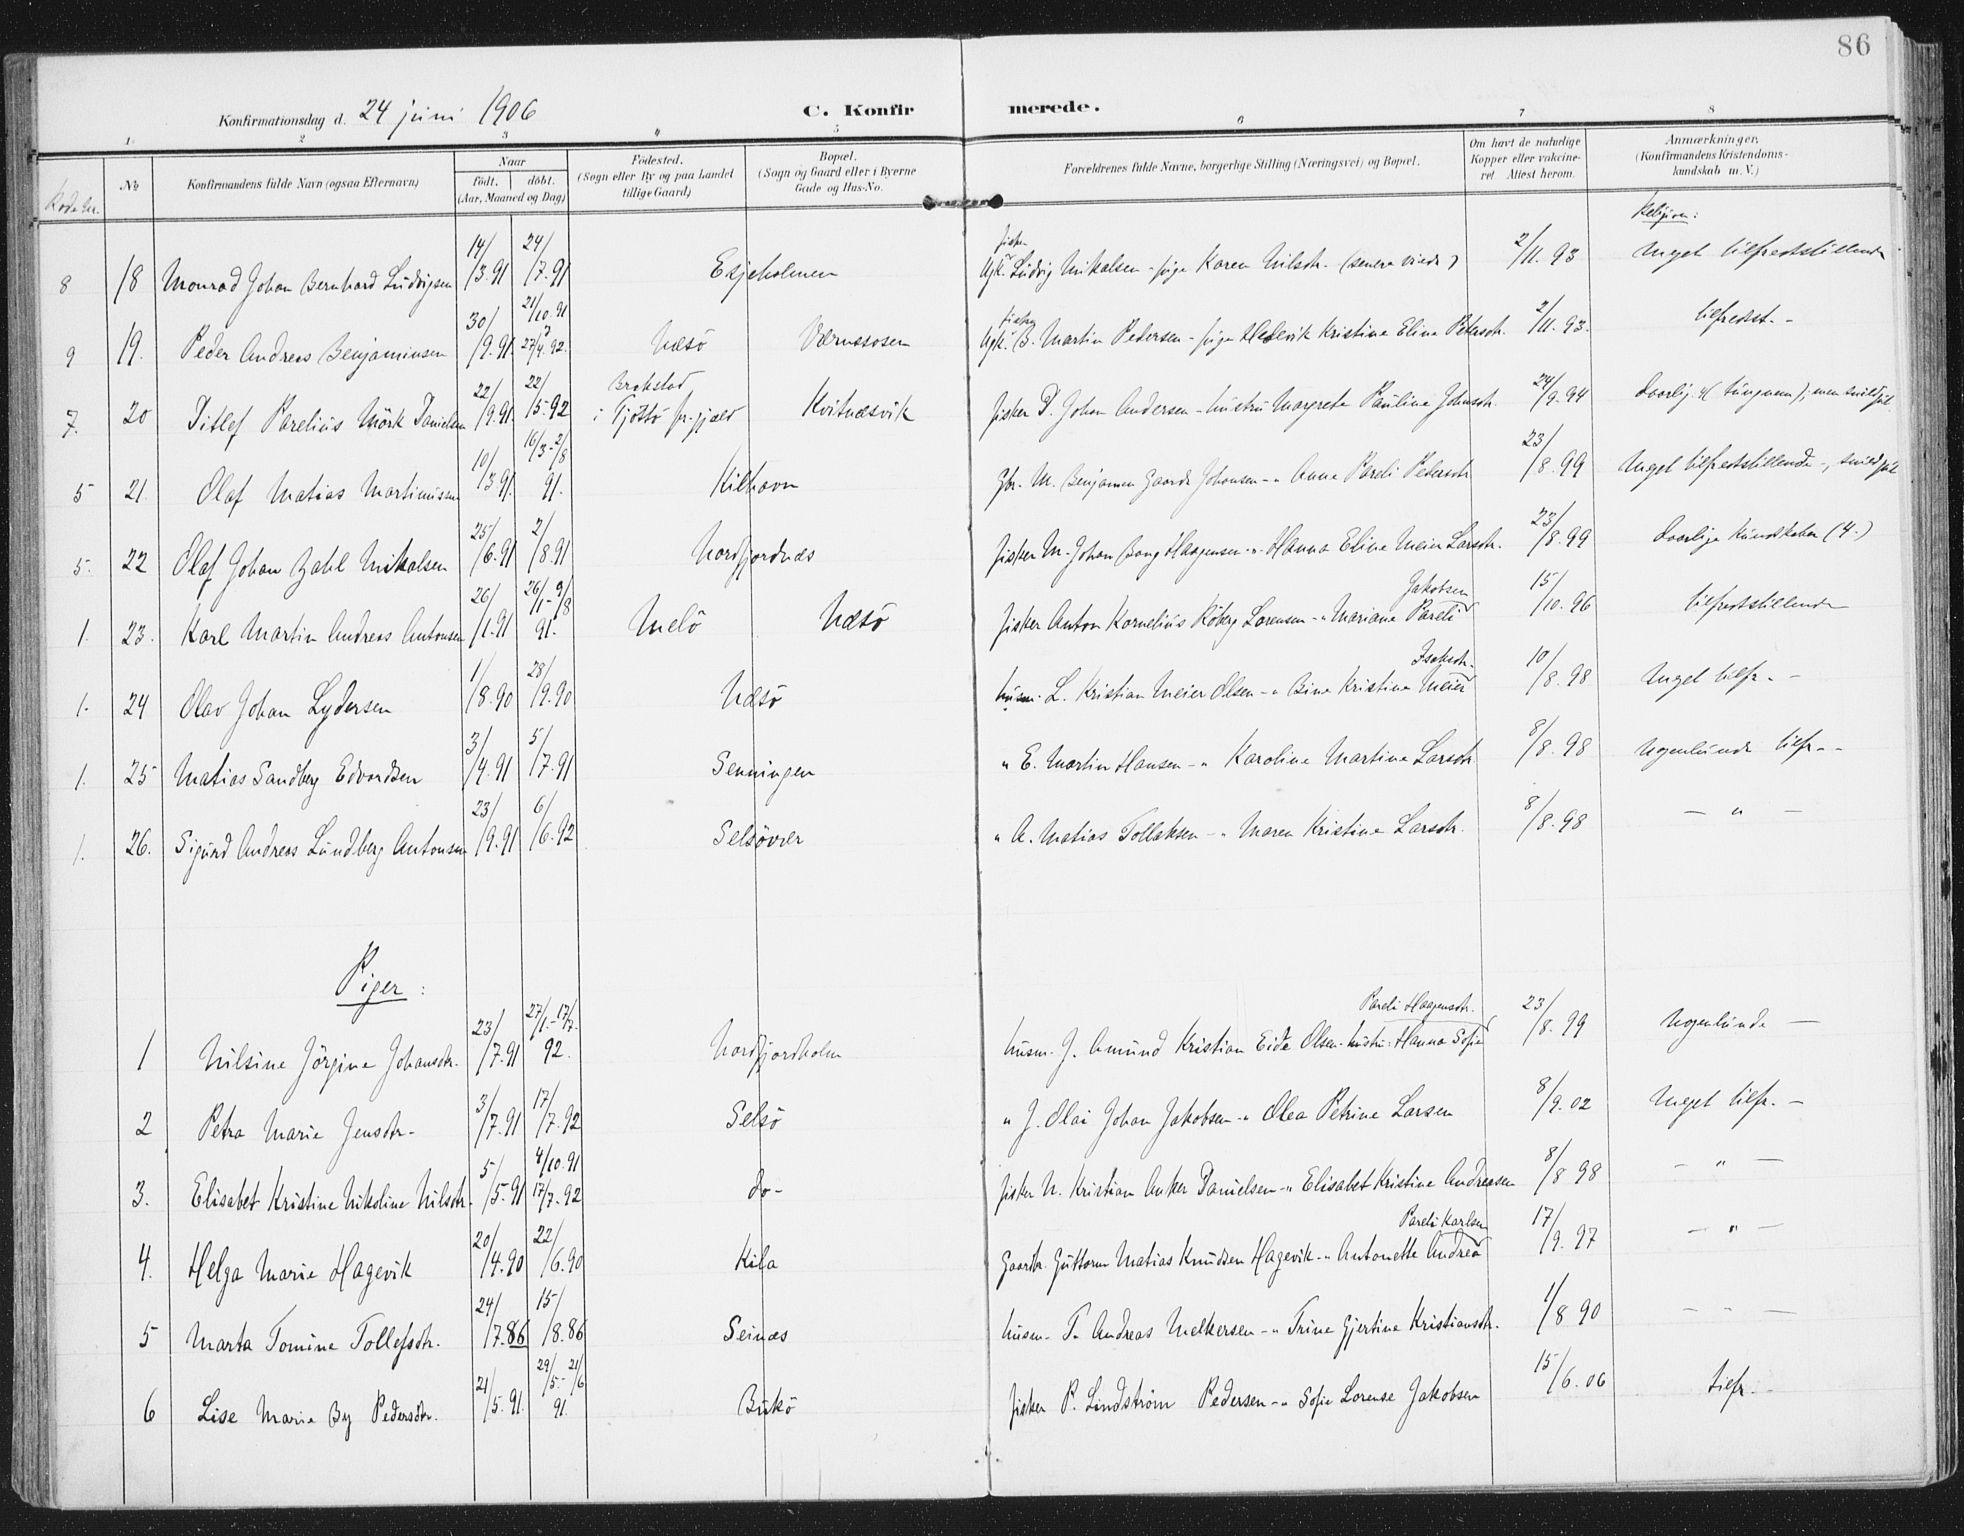 86
Konfirmationsdag d. 24 juni 1906
C. Konfirmerede.
1 2 3 4 5 6 7 8
Kode nr.
№
Konfirmandens fulde Navn (ogsaa Efternavn)
Naar
født. døbt.
(Aar, Maaned og Dag)
Fødested.
(Sogn eller By og paa Landet
tillige Gaard)
Bopæl.
(Sogn og Gaard eller i Byerne
Gade og Hus-No.
Forældrenes fulde Navne, borgerlige Stilling (Næringsvei) og Bopæl.
Om havt de naturlige
Kopper eller vakcine-
ret Attest herom.
Anmærkninger,
(Konfirmandens Kristendoms-
kundskab m. V.)
Religion:
8 18 Monrad Johan Bernhard Ludvigsen 14/3.91 24/7.91 Esjeholmen Ugk. fisker Ludvig Mikalsen - pige Karen Nilsdtr. (senere viede) 2/11.93 Meget tilfredsstillende
9 19. Peder Andreas Benjaminsen 30/9.91. 21/10.91 27/4.92. Næsö Værnæsosen Ugk. fisker B. Martin Pedersen - pige Hedevik Kristine Elina Petersdtr. 2/11.93. tilfredsst. -
7. 20 Ditlef Parelius Mörk Danielsen 22/9.91. 22/5.92 Brakstad i Tjöttö pr.gjæld Kvitnæsvik fisker D. Johan Andersen - hustru Margrete Pauline Johnsdtr. 24/9.94 daarlig (tungnem); men snild
5 21. Olaf Matias Martinussen 10/3 91. 16/3 - 2/8 91. Kilhavn Gbr. M. Benjamin Gaarde Johansen - " Anna Pareli Pedersdtr 23/8.99 Meget tilfredsstillende -, snild
5. 22 Olaf Johan Zahl Mikalsen 25/6.91 2/8.91 Nordfjordnæs fisker M. Johan Bang Haagensen - " Hanna Elina Meier Larsdtr. 23/8.99 daarlige kundskaber (4.)
1. 23. Karl Martin Andreas Antonsen 26/1.91 26/1 - 9/8 91. Melö Næsö fisker Anton Kornelius Röberg Lorensen - " Mariane Pareli Jakobsen 15/10.96 tilfredsstillende
1. 24 Olav Johan Lydersen 1/8.90 28/9.90 Næsö husm. L. Kristian Meier Olsen - " Bine Kristine Meier Isaksdtr. 10/8.98 Meget tilfr. -
1. 25 Matias Sandberg Edvardsen 3/4.91 5/7.91 Senningen " E. Martin Hansen - " Karoline Martine Larsdtr. 8/8.98 Nogenlunde tilfr. -
1. 26. Sigurd Andreas Lundberg Antonsen 23/9.91 6/6.92 Selsövær " A. Matias Tollaksen - " Maren Kristine Larsdtr. 8/8.98 - " -
Piger:
1 Nilsine Jörgine Johansdtr. 23/7.91 27/1. - 17/7. 92. Nordfjordholm husm. J. Amund Kristian Eide Olsen - hustru: Hanna Sofie Pareli Haagensdtr. 23/8.99 Nogenlunde -
2 Petra Marie Jensdtr. 3/7.91 17/7.92 Selsö " J. Olai Johan Jakobsen - " Olea Petrine Larsen 8/9.02 Meget tilfr. -
3. Elisabet Kristine Nikoline Nilsdtr. 5/5.91 4/10.91 17/7.92 do - fisker N. Kristian Anker Danielsen - " Elisabet Kristine Andreasen 8/8 98 - " -
4. Helga Marie Hagevik 20/4.90 22/6.90 Kila Gaardbr. Guttorm Matias Knudsen Hagevik - " Antonette Andrea Pareli Karlsen 17/9.97 - " -
5 Marta Tomine Tollefsdtr. 24/7.86 15/8.86 Seinæs husm. T. Andreas Melkersen - " Trine Gjertine Kristiansdtr. 1/8 90 - " -
6 Lise Marie By Pedersdtr. 21/5.91. 29/5. - 21/6 91. Bukö fisker P. Lindström Pedersen - " Sofie Lorense Jakobsen 15/6.06 tilfr. -